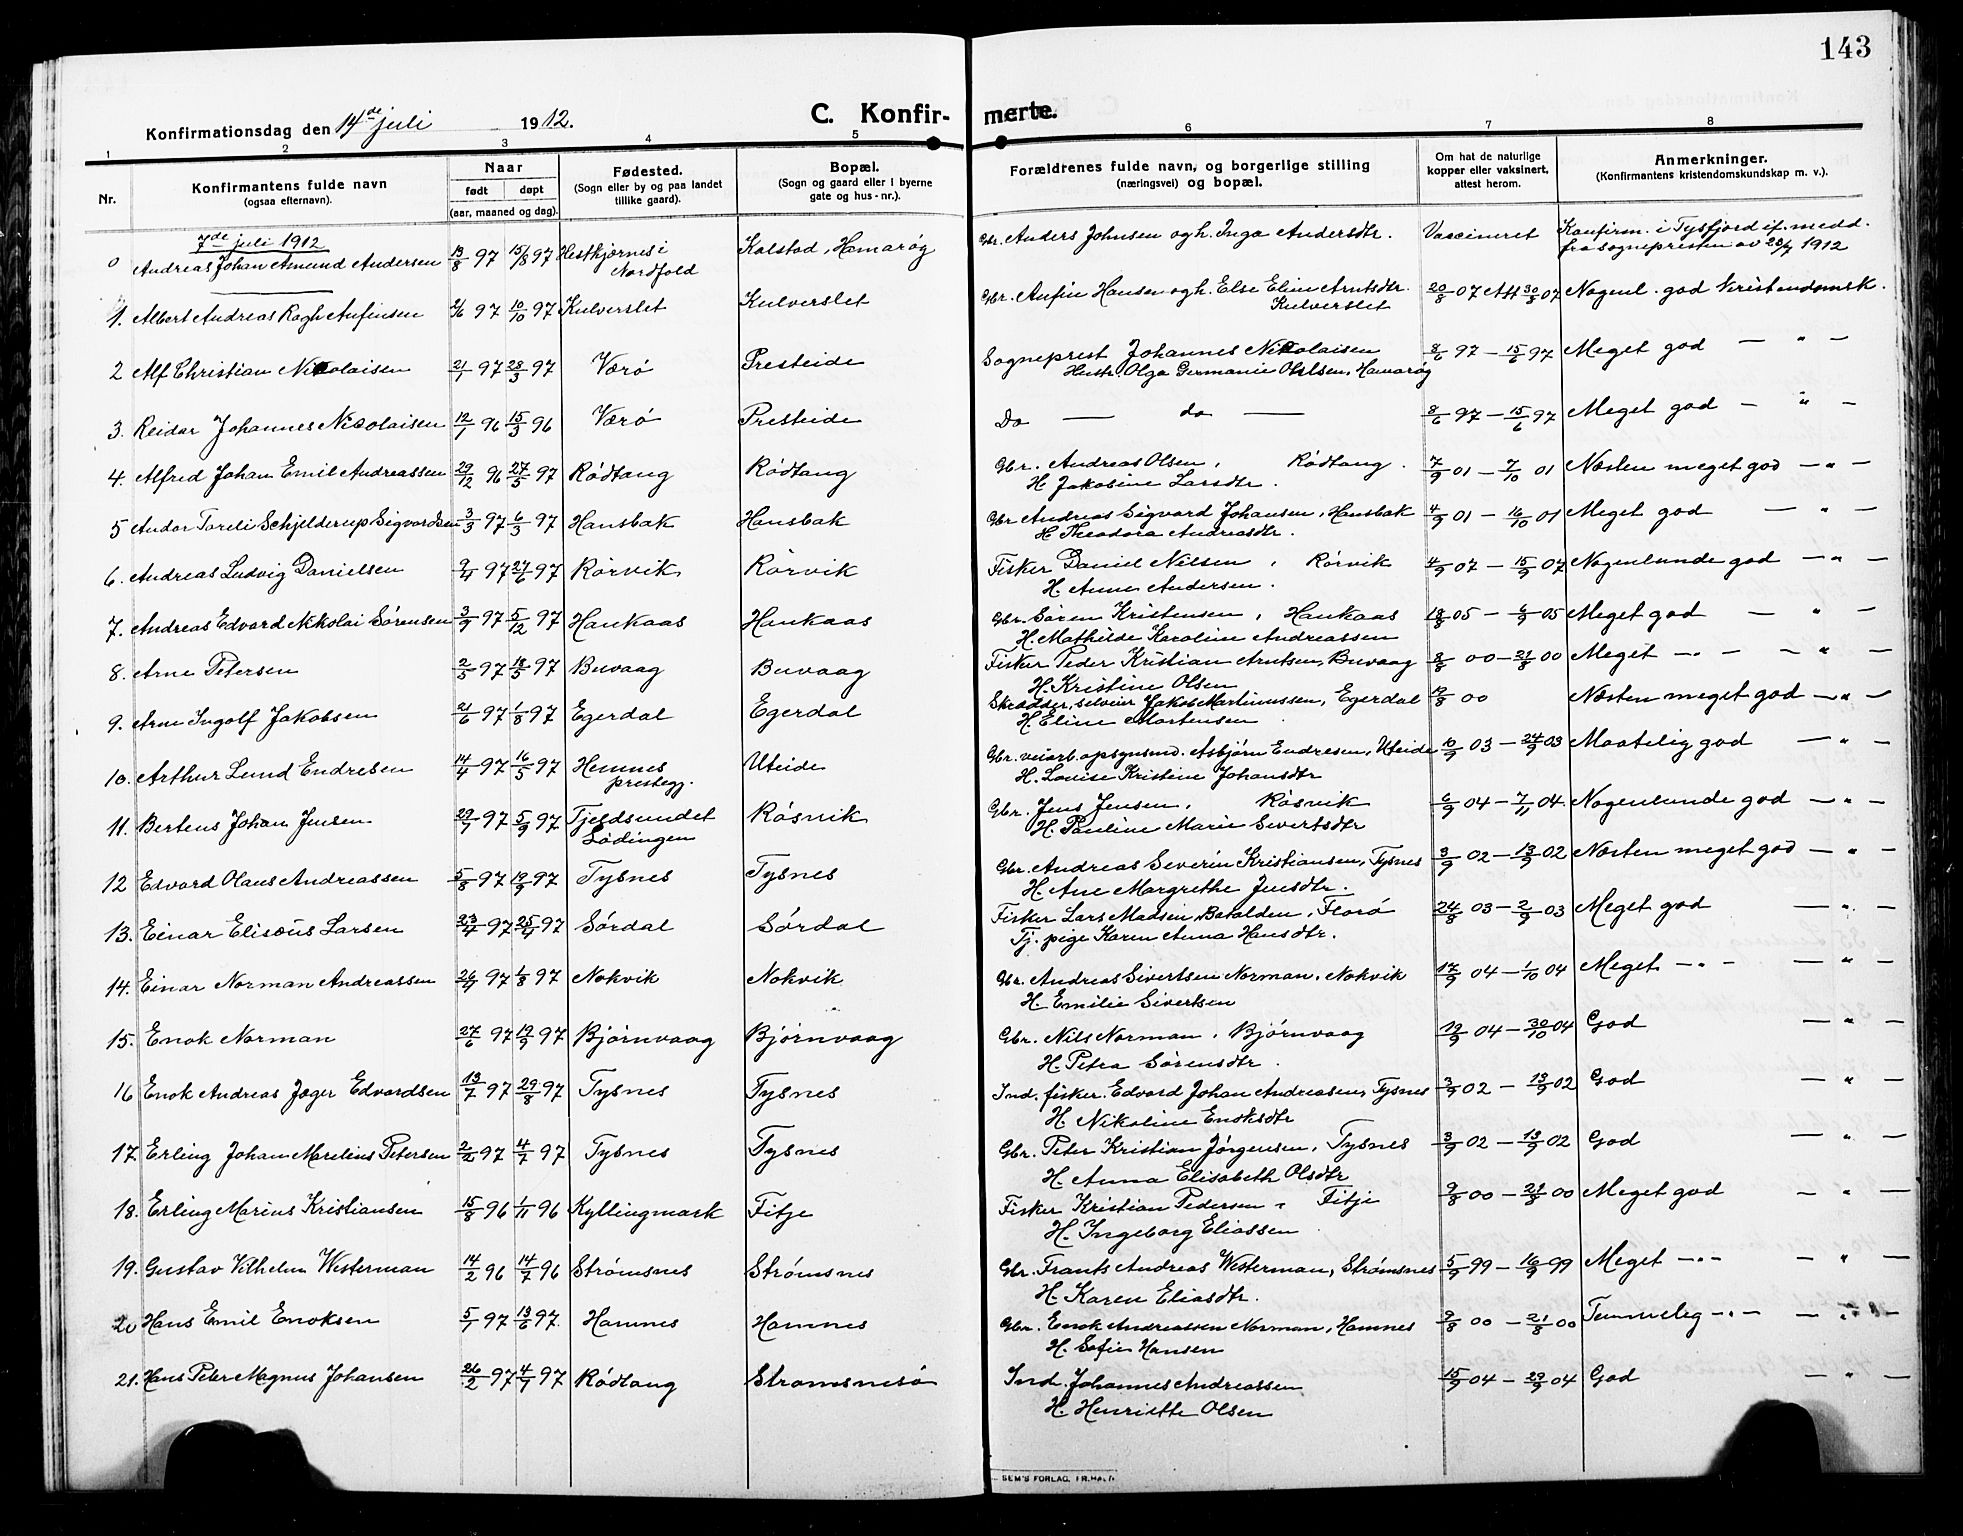 143
Konfirmationsdag den 14de juli 1912.
C. Konfir-
merte.
1 2 3 4 5 6 7 8
Nr.
Konfirmantens fulde navn
(ogsaa efternavn).
Naar
født døpt
(aar, maaned og dag).
Fødested.
(Sogn eller by og paa landet
tillike gaard).
Bopæl.
(Sogn og gaard eller i byerne
gate og hus-nr.).
Forældrenes fulde navn, og borgerlige stilling
(næringsvei) og bopæl.
Om hat de naturlige
kopper eller vaksinert,
attest herom.
Anmerkninger.
(Konfirmantens kristendomskundskap m. v.).
7de juli 1912
0 Andreas Johan Amund Andersen 13/8 97 15/8 97 Hestkjørnes i Nordfold Kalstad, Hamarøy Gbr. Anders Johnsen og h. Inga Andersdtr. Vaccineret Konfirm. i Tysfjord if. medd.
fra sognepresten av 28/7 1912
1. Albert Andreas Rogh Anfinsen 2/6 97 10/10 97 Kulverslet Kulverslet Gbr. Anfin Hansen og h. Else Eline Arntsdtr. 20/8 07 Att 30/8 07 Nogenl. god Kristendomsk.
Kulverslet
2 Alf Christian Nikolaisen 21/1 97 28/3 97 Værø Presteide Sogneprest Johannes Nikolaisen 8/6 97 — 15/6 97 Meget god — " —
Hustr. Olga Germanie Olsen, Hamarøy
3. Reidar Johannes Nicolaisen 12/1 96 15/3 96 Værø Presteide Do — do — 8/6 97 — 15/6 97 Meget god — " —
4. Alfred Johan Emil Andreassen 29/12 96 27/5 97 Rødtang Rødtang Gbr. Andreas Olsen, Rødtang. 7/9 01 — 7/10 01 Næsten meget god — " —
H. Jakobine Larsdtr.
5 Andor Toreli Schjelderup Sigvardsen 3/3 97 6/3 97 Hansbak Hansbak Gbr Andreas Sigvard Johansen, Hansbak 4/9 01 — 16/10 01 Meget god — " —
H. Theodora Andreasdtr.
6. Andreas Ludvig Danielsen 9/4 97 27/6 97 Rørvik Rørvik Fisker Daniel Nilsen, Rørvik 4/9 07 — 15/9 07 Nogenlunde god — " —
H. Anne Andersen.
7. Andreas Edvard Nikolai Sørensen 3/9 97 5/12 97 Haukaas Haukaas Gbr. Søren Kristensen, Haukaas 18/8 05 — 6/9 05 Meget god — " —
H. Mathilde Karoline Andreassen
8. Arne Petersen 2/5 97 18/5 97 Buvaag Buvaag Fisker Peder Kristian Arntsen, Buvaag 8/8 00 — 21/8 00 Meget — " — — " —
H. Kristine Olsen
9. Arne Ingolf Jakobsen 21/6 97 1/8 97 Egerdal Egerdal Skrædder, selveier Jakob Martinussen, Egerdal 19/8 00 Næsten meget god — " —
H. Eline Mortensen
10. Arthur Lund Endresen 14/4 97 16/5 97 Hemnes prestegj. Uteide Gbr. veiarb. opsynsmd. Asbjørn Endresen, Uteide 10/9 03 — 24/9 03 Maatelig god — " —
H. Louise Kristine Johansdtr
11. Bertens Johan Jensen 29/7 97 5/9 97 Tjeldsundet Lødingen Røsvik Gbr. Jens Jensen, Røsvik 6/9 04 — 7/11 04. Nogenlunde god — " —
H. Pauline Marie Sivertsdtr
12 Edvard Olaus Andreassen 5/8 97 19/9 97 Tysnes Tysnes Gbr. Andreas Severin Kristiansen, Tysnes 3/9 02 — 13/9 02 Næsten meget god — " —
H. Ane Margrethe Jensdtr.
13. Einar Elisæus Larsen 23/4 97 25/4 97 Sørdal Sørdal Fisker Lars Madsen, Batalden, Florø 24/8 03 — 2/9 03 Meget god — " —
Tj. pige Karen Anna Hansdtr.
14. Einar Norman Andreassen 26/4 97 1/8 97 Nokvik Nokvik Gbr. Andreas Sivertsen Norman, Nokvik 17/9 04 — 1/10 04 Meget — " — — " —
H. Emilie Sivertsen
15. Enok Norman 27/6 97 19/9 97 Bjørnvaag Bjørnvaag Gbr. Nils Norman, Bjørnvaag 19/9 04 — 30/10 04 God — " —
H. Petra Sørensdtr.
16 Enok Andreas Jæger Edvardsen 13/7 97 29/8 97 Tysnes Tysnes Ind. fisker. Edvard Johan Andreasen, Tysnes 3/9 02 — 13/9 02 God — " —
H. Nikoline Enoksdtr
17. Erling Johan Marelius Petersen 2/2 97 4/7 97 Tysnes Tysnes Gbr. Peter Kristian Jørgensen, Tysnes 3/9 02 — 13/9 02 God — " —
H. Anna Elisabeth Olsdtr
18. Erling Marius Kristiansen 15/8 96 1/11 96 Kyllingmark Fitje Fisker Kristian Pedersen, Fitje 9/8 00 — 21/8 00 Meget god — " —
H. Ingeborg Eliassen
19. Gustav Vilhelm Westerman 14/2 96 14/7 96 Strømsnes Strømsnes Gbr. Frants Andreas Westerman, Strømsnes 5/9 99 — 16/9 99 Meget — " — — " —
H. Karen Eliasdtr.
20 Hans Emil Enoksen 5/1 97 13/6 97. Hamnes Hamnes Gbr. Enok Andreassen Norman, Hamnes 9/8 00 — 21/8 00 Temmelig — " — — " —
H. Sofie Hansen
21. Hans Peter Magnus Johansen 26/2 97 4/7 97 Rødtang Strømsnesø Ind. Johannes Andreassen 15/9 04 — 29/9 04 God — " —
H. Henriette Olsen
SEM'S FORLAG, FR.HALD